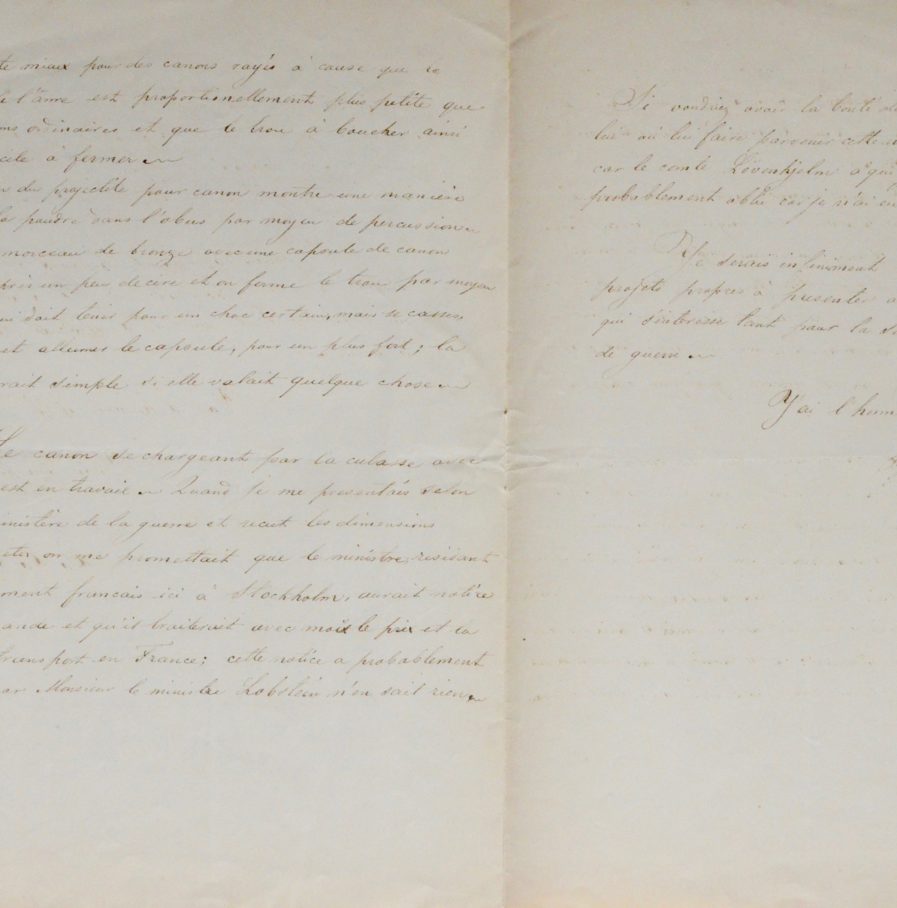 te mieux pour des canons rayés à cause que le
de l'âme est proportionellement plus petite que
ons ordinaires et que le trou à boucher ainsi
cile à fermer
du projectile pour canon montre une manière
la poudre dans l'obus par moyen de percussion
morceau de bronze avec une capsule de canon
pris un peu de cire et on ferme le trou par moyen
ui doit tenir pour un choc certain, mais se casser
et allumer le capsule, pour un plus fort; la
rait simple si elle valait quelque chose
Le canon se chargeant par la culasse avec
est en travail Quand je me presentais selon
inistère de la guerre et recut les dimensions
on me promettait que le ministre residant
ment francais ici à Stockholm, aurait notice
ande et qu'il traiterait avec moi le prix et la
transport en France; cette notice a probablement
car Monsieur le ministre Lobstein n'en sait rien
Si vondriez avoir la bonté de
lui où lui faire parvenir cette
car le comte Lövenhjelm à qui
probablement oblié car je n'ai
Je serais infiniment
projets propres à presenter a
qui s'interesse tant pour la
de guerre
J'ai l'honn